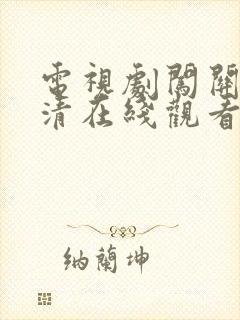 電視劇闖關
清在綫觀看
納蘭坤